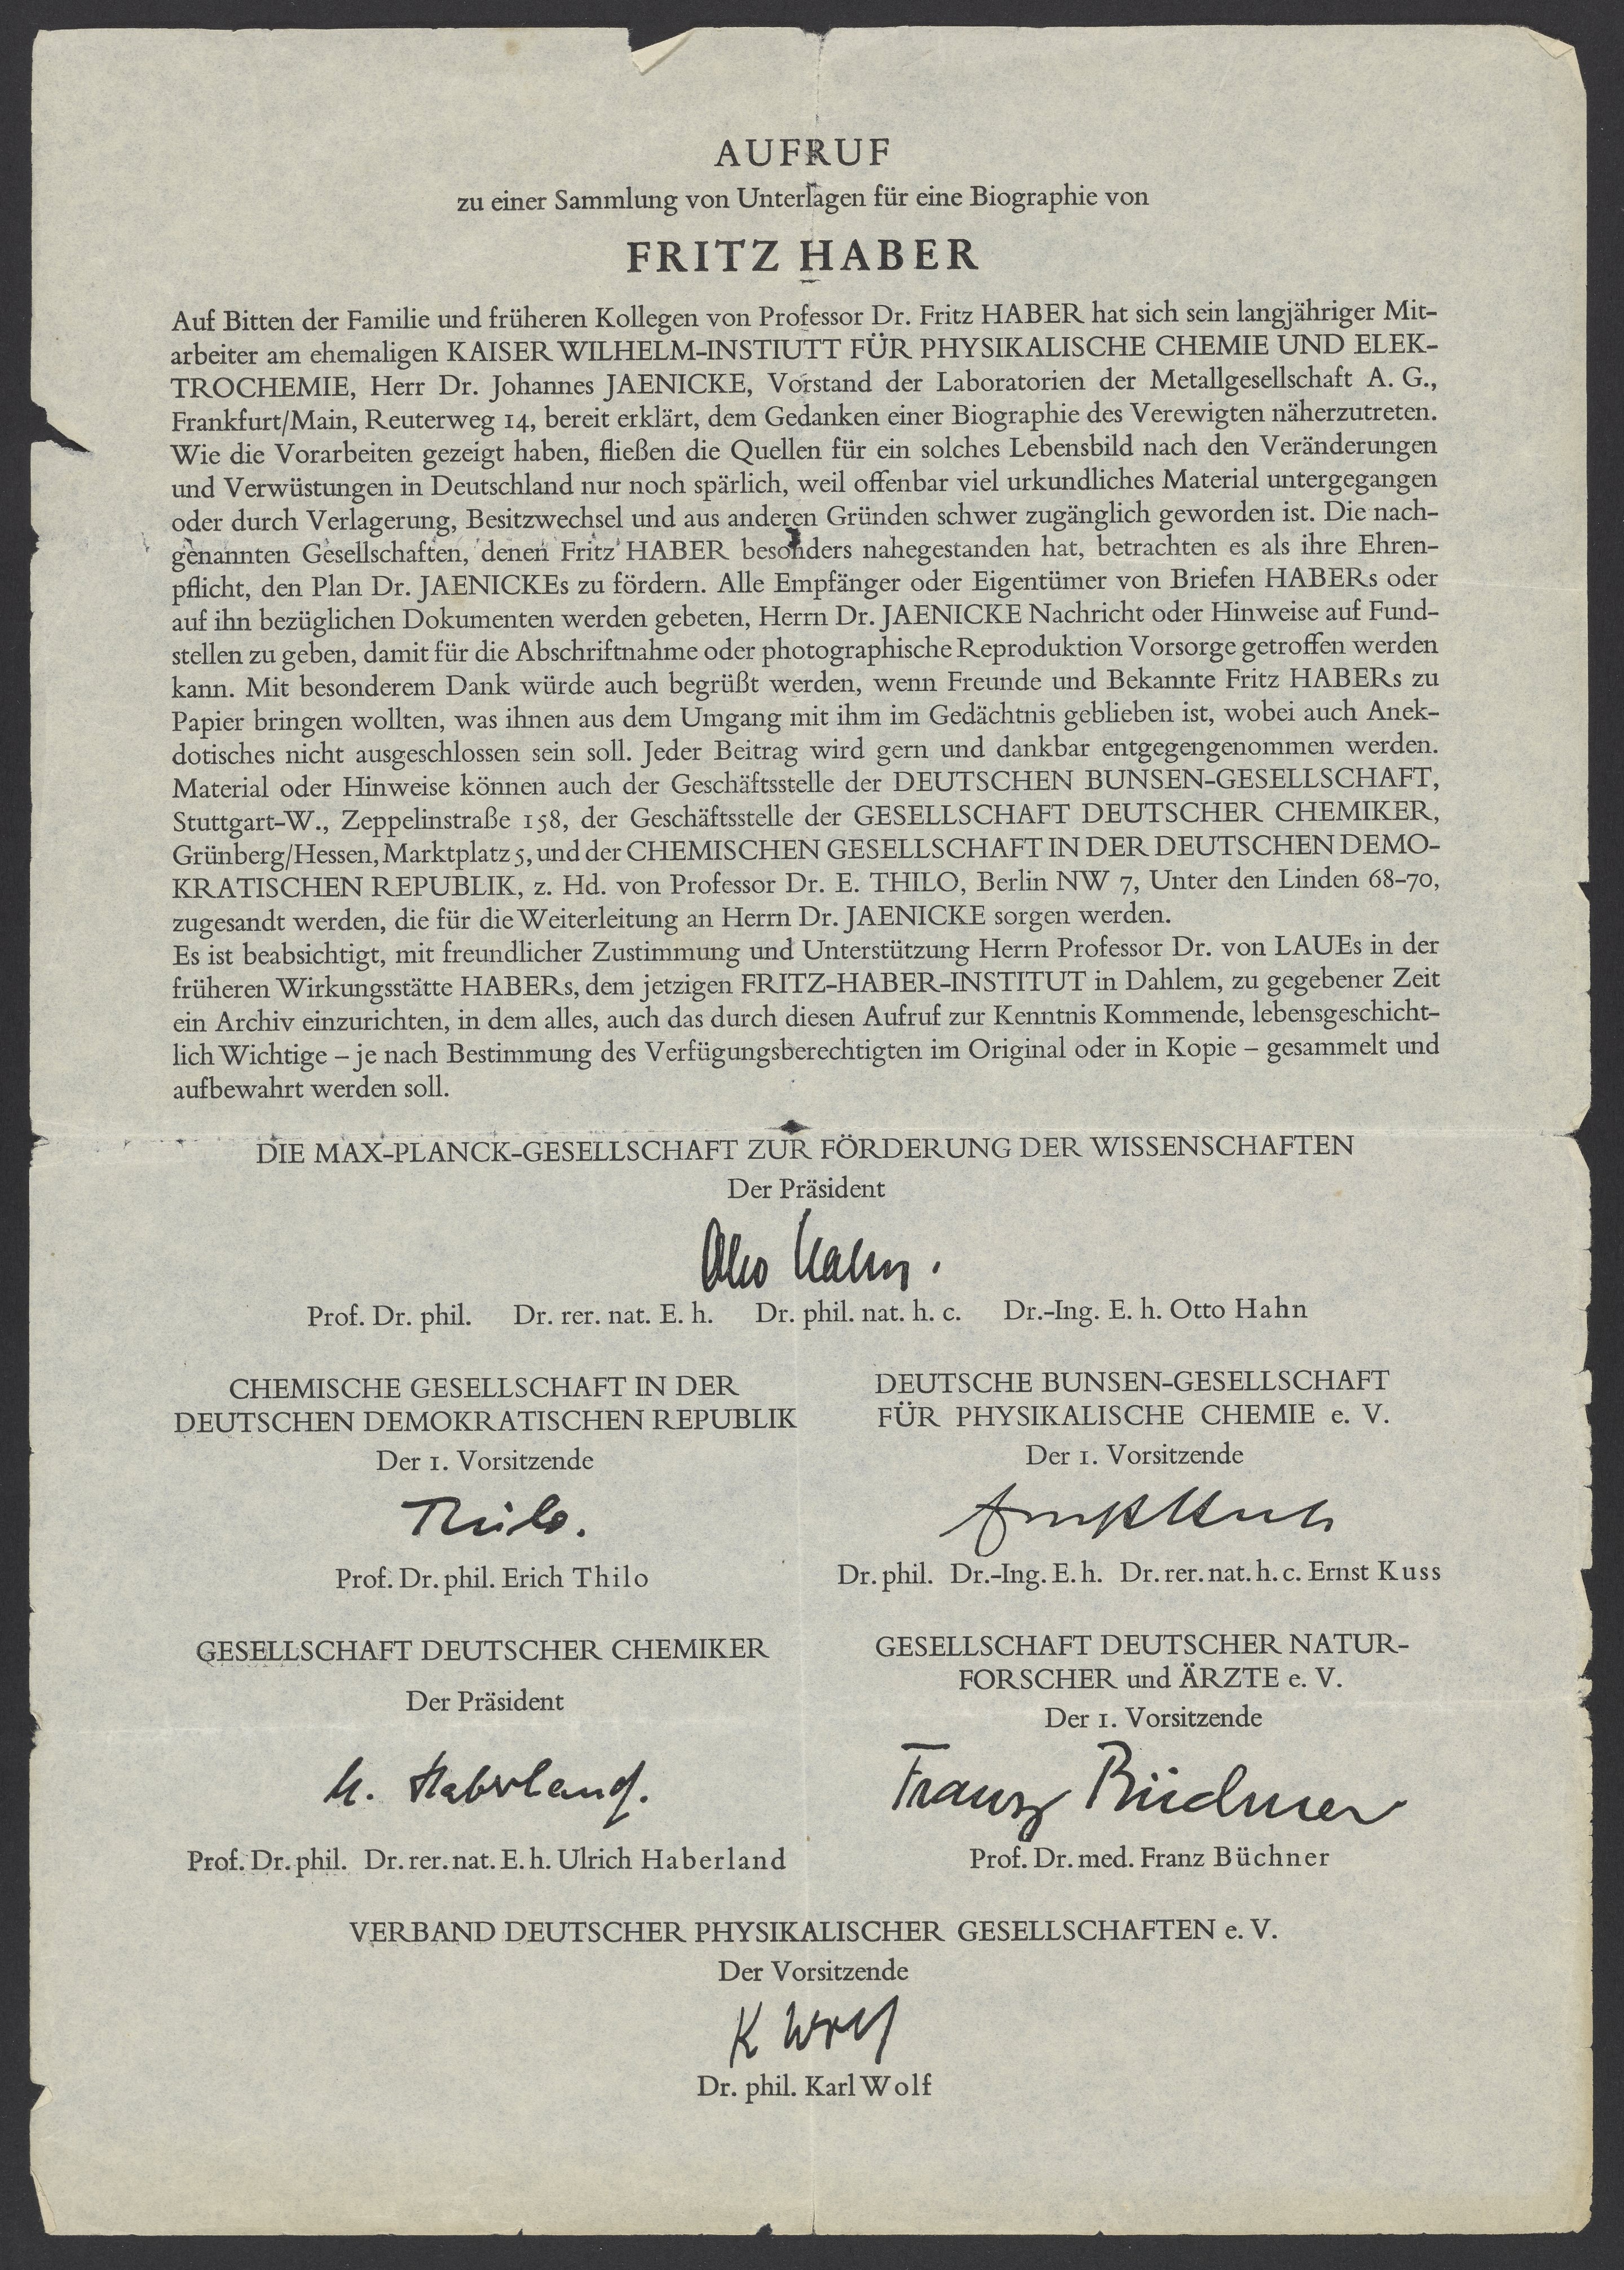 AUFRUF
zu einer Sammlung von Unterlagen für eine Biographie von
FRITZ HABER
Auf Bitten der Familie und früheren Kollegen von Professor Dr. Fritz HABER hat sich sein langjähriger Mit-
arbeiter am ehemaligen KAISER WILHELM-INSTIUTT FÜR PHYSIKALISCHE CHEMIE UND ELEK-
TROCHEMIE, Herr Dr. Johannes JAENICKE, Vorstand der Laboratorien der Metallgesellschaft A. G.,
Frankfurt/Main, Reuterweg 14, bereit erklärt, dem Gedanken einer Biographie des Verewigten näherzutreten.
Wie die Vorarbeiten gezeigt haben, fließen die Quellen für ein solches Lebensbild nach den Veränderungen
und Verwüstungen in Deutschland nur noch spärlich, weil offenbar viel urkundliches Material untergegangen
oder durch Verlagerung, Besitzwechsel und aus anderen Gründen schwer zugänglich geworden ist. Die nach-
genannten Gesellschaften, denen Fritz HABER besonders nahegestanden hat, betrachten es als ihre Ehren-
pflicht, den Plan Dr. JAENICKEs zu fördern. Alle Empfänger oder Eigentümer von Briefen HABERs oder
auf ihn bezüglichen Dokumenten werden gebeten, Herrn Dr. JAENICKE Nachricht oder Hinweise auf Fund-
stellen zu geben, damit für die Abschriftnahme oder photographische Reproduktion Vorsorge getroffen werden
kann. Mit besonderem Dank würde auch begrüßt werden, wenn Freunde und Bekannte Fritz HABERs zu
Papier bringen wollten, was ihnen aus dem Umgang mit ihm im Gedächtnis geblieben ist, wobei auch Anek-
dotisches nicht ausgeschlossen sein soll. Jeder Beitrag wird gern und dankbar entgegengenommen werden.
Material oder Hinweise können auch der Geschäftsstelle der DEUTSCHEN BUNSEN-GESELLSCHAFT,
Stuttgart-W., Zeppelinstraße 158, der Geschäftsstelle der GESELLSCHAFT DEUTSCHER CHEMIKER,
Grünberg/Hessen, Marktplatz 5, und der CHEMISCHEN GESELLSCHAFT IN DER DEUTSCHEN DEMO-
KRATISCHEN REPUBLIK, z. Hd. von Professor Dr. E. THILO, Berlin NW 7, Unter den Linden 68-70,
zugesandt werden, die für die Weiterleitung an Herrn Dr. JAENICKE sorgen werden.
Es ist beabsichtigt, mit freundlicher Zustimmung und Unterstützung Herrn Professor Dr. von LAUEs in der
früheren Wirkungsstätte HABERs, dem jetzigen FRITZ-HABER-INSTITUT in Dahlem, zu gegebener Zeit
ein Archiv einzurichten, in dem alles, auch das durch diesen Aufruf zur Kenntnis Kommende, lebensgeschicht-
lich Wichtige – je nach Bestimmung des Verfügungsberechtigten im Original oder in Kopie – gesammelt und
aufbewahrt werden soll.
DIE MAX-PLANCK-GESELLSCHAFT ZUR FÖRDERUNG DER WISSENSCHAFTEN
Der Präsident
Otto Hahn.
Prof. Dr. phil. Dr. rer. nat. E. h. Dr. phil. nat. h. c. Dr.-Ing. E. h. Otto Hahn
CHEMISCHE GESELLSCHAFT IN DER
DEUTSCHEN DEMOKRATISCHEN REPUBLIK
Der 1. Vorsitzende
Thilo.
Prof. Dr. phil. Erich Thilo
DEUTSCHE BUNSEN-GESELLSCHAFT
FÜR PHYSIKALISCHE CHEMIE e. V.
Der 1. Vorsitzende
Ernst Kuss
Dr. phil. Dr.-Ing. E. h. Dr. rer. nat. h. c. Ernst Kuss
GESELLSCHAFT DEUTSCHER CHEMIKER
Der Präsident
U. Haberland.
Prof. Dr. phil. Dr. rer. nat. E. h. Ulrich Haberland
GESELLSCHAFT DEUTSCHER NATUR-
FORSCHER und ÄRZTE e. V.
Der 1. Vorsitzende
Franz Büchner
Prof. Dr. med. Franz Büchner
VERBAND DEUTSCHER PHYSIKALISCHER GESELLSCHAFTEN e. V.
Der Vorsitzende
K Wolf
Dr. phil. Karl Wolf